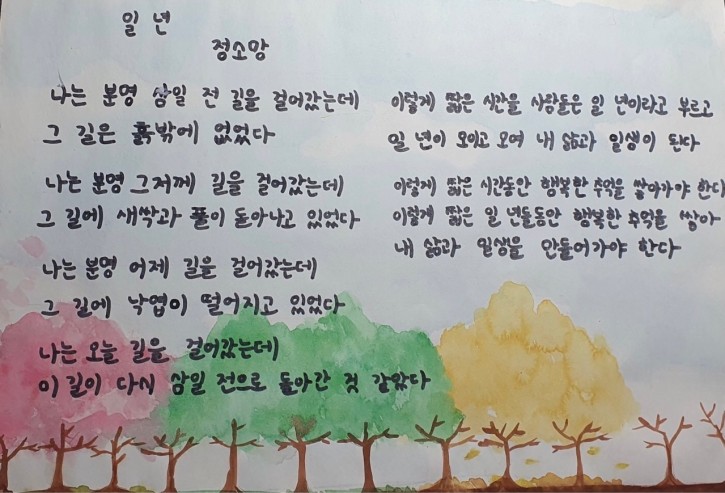 일 년
정소망
나는 분명 삼일 전 길을 걸어갔는데
그 길은 흙밖에 없었다
나는 분명 그저께 길을 걸어갔는데
그 길에 새싹과 풀이 돋아나고 있었다
나는 분명 어제 길을 걸어갔는데
그 길에 낙엽이 떨어지고 있었다
나는 오늘 길을 걸어갔는데
이 길이 다시 삼일 전으로 돌아간 것 같았다
이렇게 짧은 시간을 사람들은 일 년이라고 부르고
일 년이 모이고 모여 내 삶과 일생이 된다
이렇게 짧은 시간동안 행복한 추억을 쌓아가야 한다
이렇게 짧은 일 년들동안 행복한 추억을 쌓아
내 삶과 일생을 만들어가야 한다